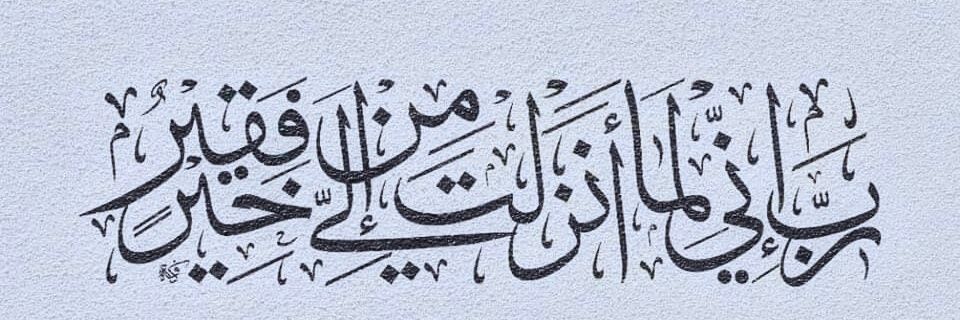 رَبِّ إِنِّي لِمَا أَنزَلْتَ إِلَيَّ مِنْ خَيْرٍ فَقِيرٌ